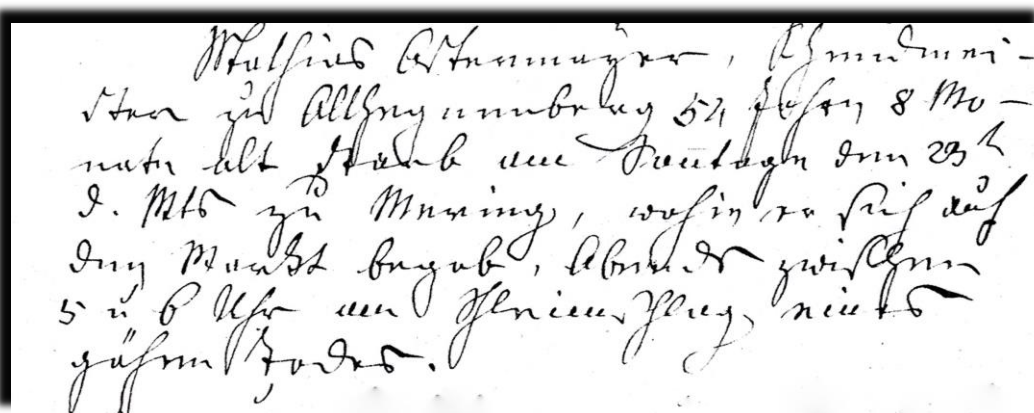 Mathias Ostermayer, Schmidmei-
ster zu Althegnenberg 54 Jahr 8 Mo-
nate alt starb am Sontage den 23t
d. Mts zu Mering, wohin er sich auf
den Markt begab, Abends zwischen
5 u 6 Uhr am Schleimschlag eines
gähen Todes.